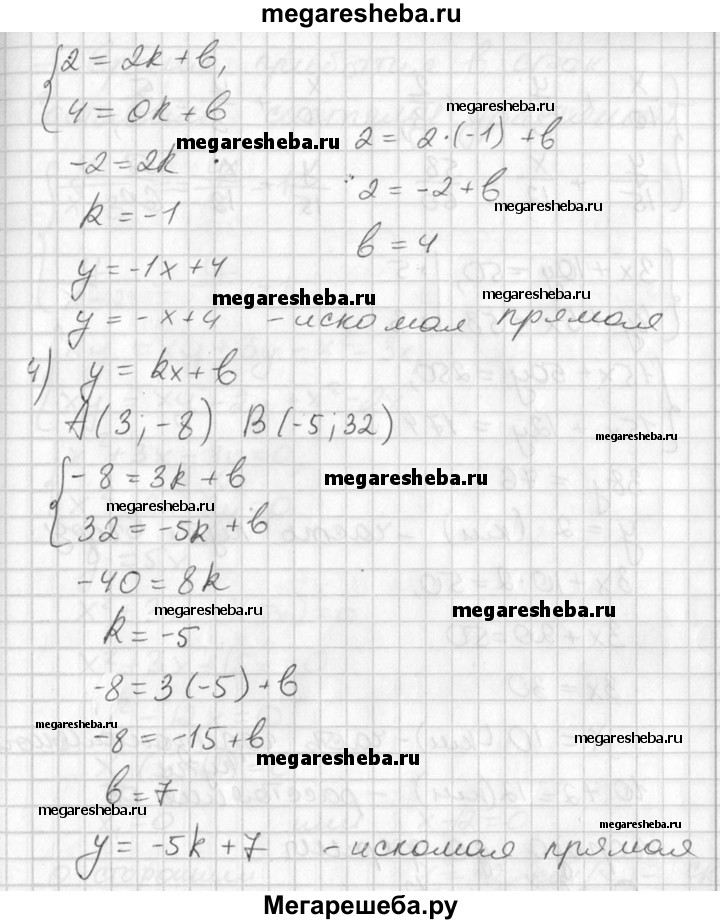 megaresheba.ru
2 = 2k + b,
4 = 0k + b
megaresheba.ru
-2 = 2k
megaresheba.ru
2 = 2·(-1) + b
k = -1
2 = -2 + b
megaresheba.ru
b = 4
y = -1x + 4
megaresheba.ru
megaresheba.ru
y = -x + 4 - искомая прямая
4) y = kx + b
A(3; -8) B(-5; 32)
megaresheba.ru
-8 = 3k + b
megaresheba.ru
megaresheba.ru
32 = -5k + b
-40 = 8k
megaresheba.ru
megaresheba.ru
k = -5
-8 = 3(-5) + b
megaresheba.ru
-8 = -15 + b
megaresheba.ru
megaresheba.ru
b = 7
megaresheba.ru
megaresheba.ru
y = -5k + 7 - искомая прямая
Мегарешеба.ру